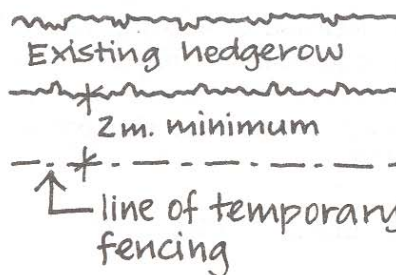 Existing hedgerow
2m. minimum
line of temporary
fencing